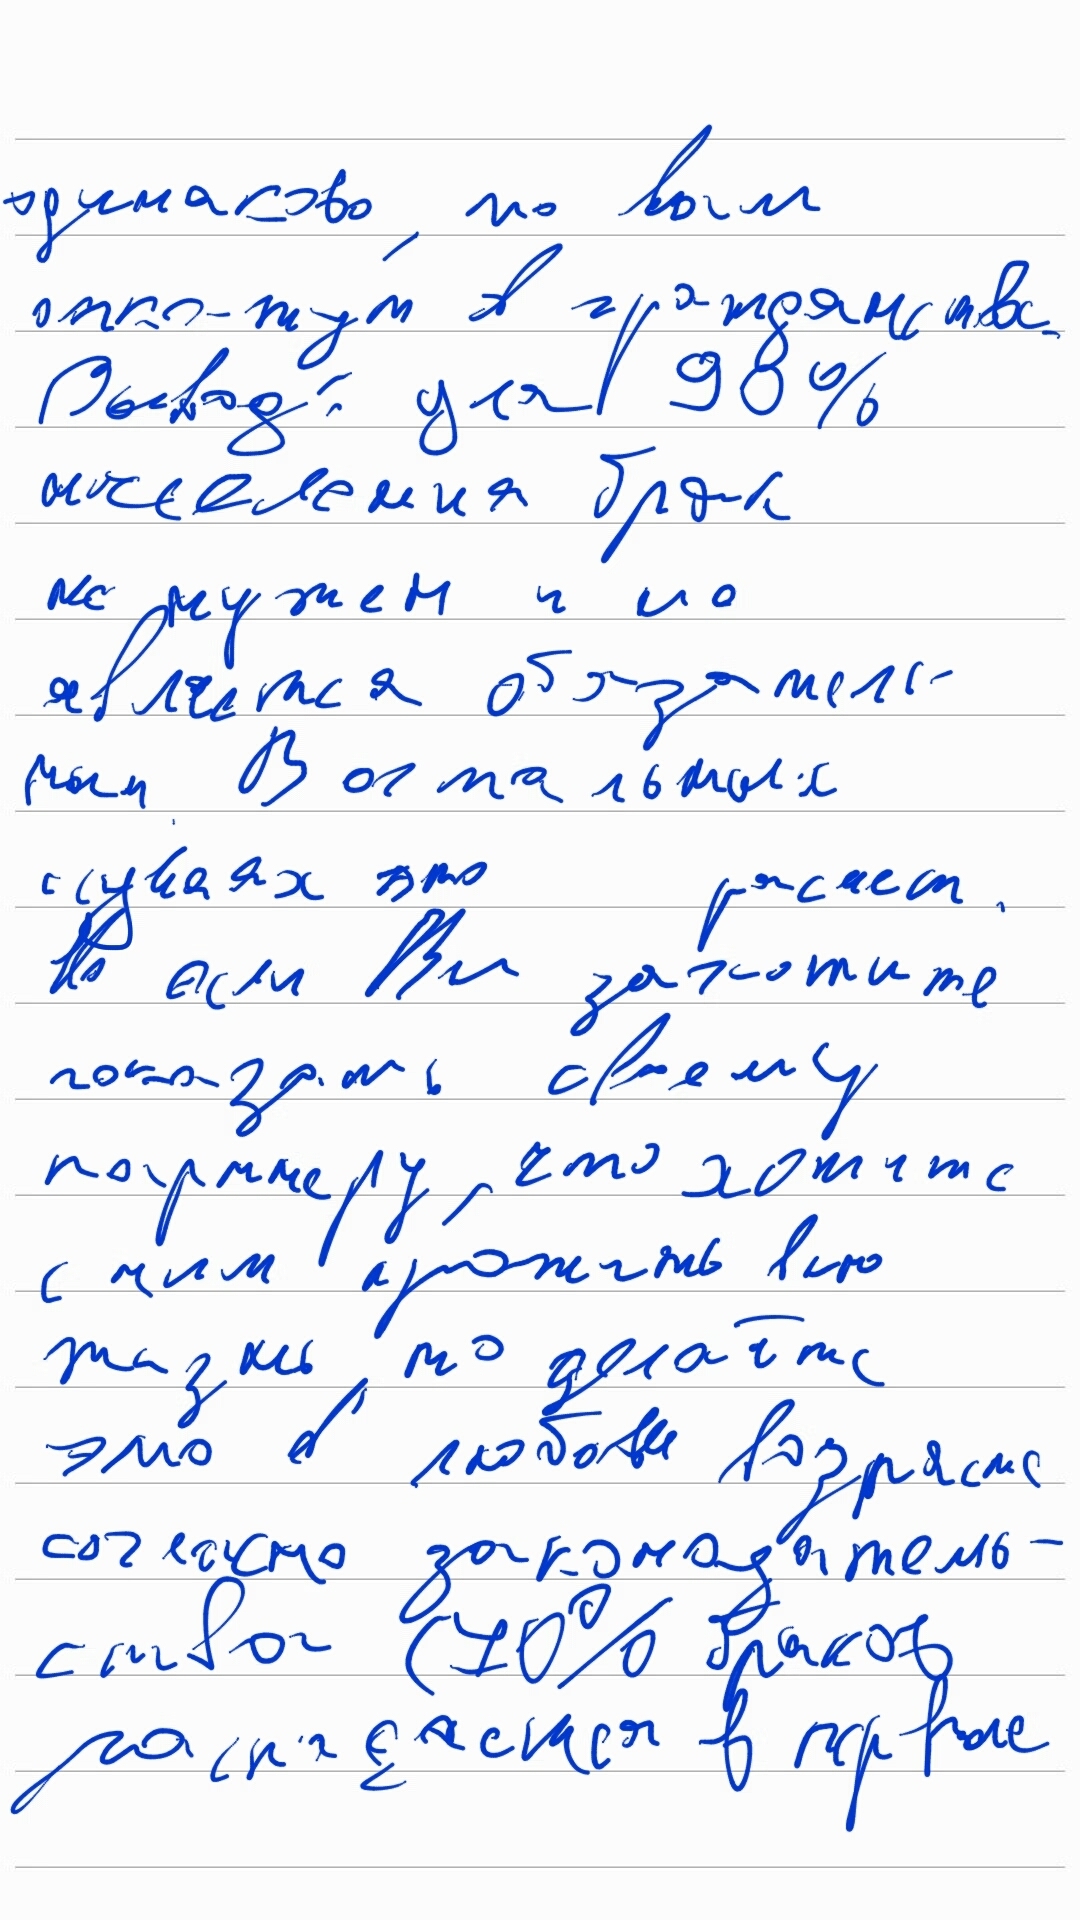 одинаково, но вам
откажут в гражданстве.
Вывод: для 98%
населения брак
не нужен и не
является обязатель-
ным В остальных
случаях это рясает.
Но если Вы захотите
показать своему
партнеру, что хотите
с ним прожить всю
жизнь, то делайте
это в любом возрасте
согласно законодатель-
ства (70% браков
распадается в первые